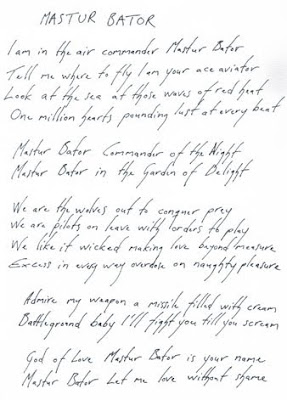 MASTUR BATOR
I am in the air commander Mastur Bator
Tell me where to fly I am your ace aviator
Look at the sea at those waves of red heat
One million hearts pounding lust at every beat
Mastur Bator Commander of the Night
Mastur Bator in the Garden of Delight
We are the wolves out to conquer prey
We are pilots on leave with orders to play
We like it wicked making love beyond measure
Excess in every way overdose on naughty pleasure
Admire my weapon a missile filled with cream
Battleground baby I'll fight you till you scream
God of Love Mastur Bator is your name
Mastur Bator Let me love without shame